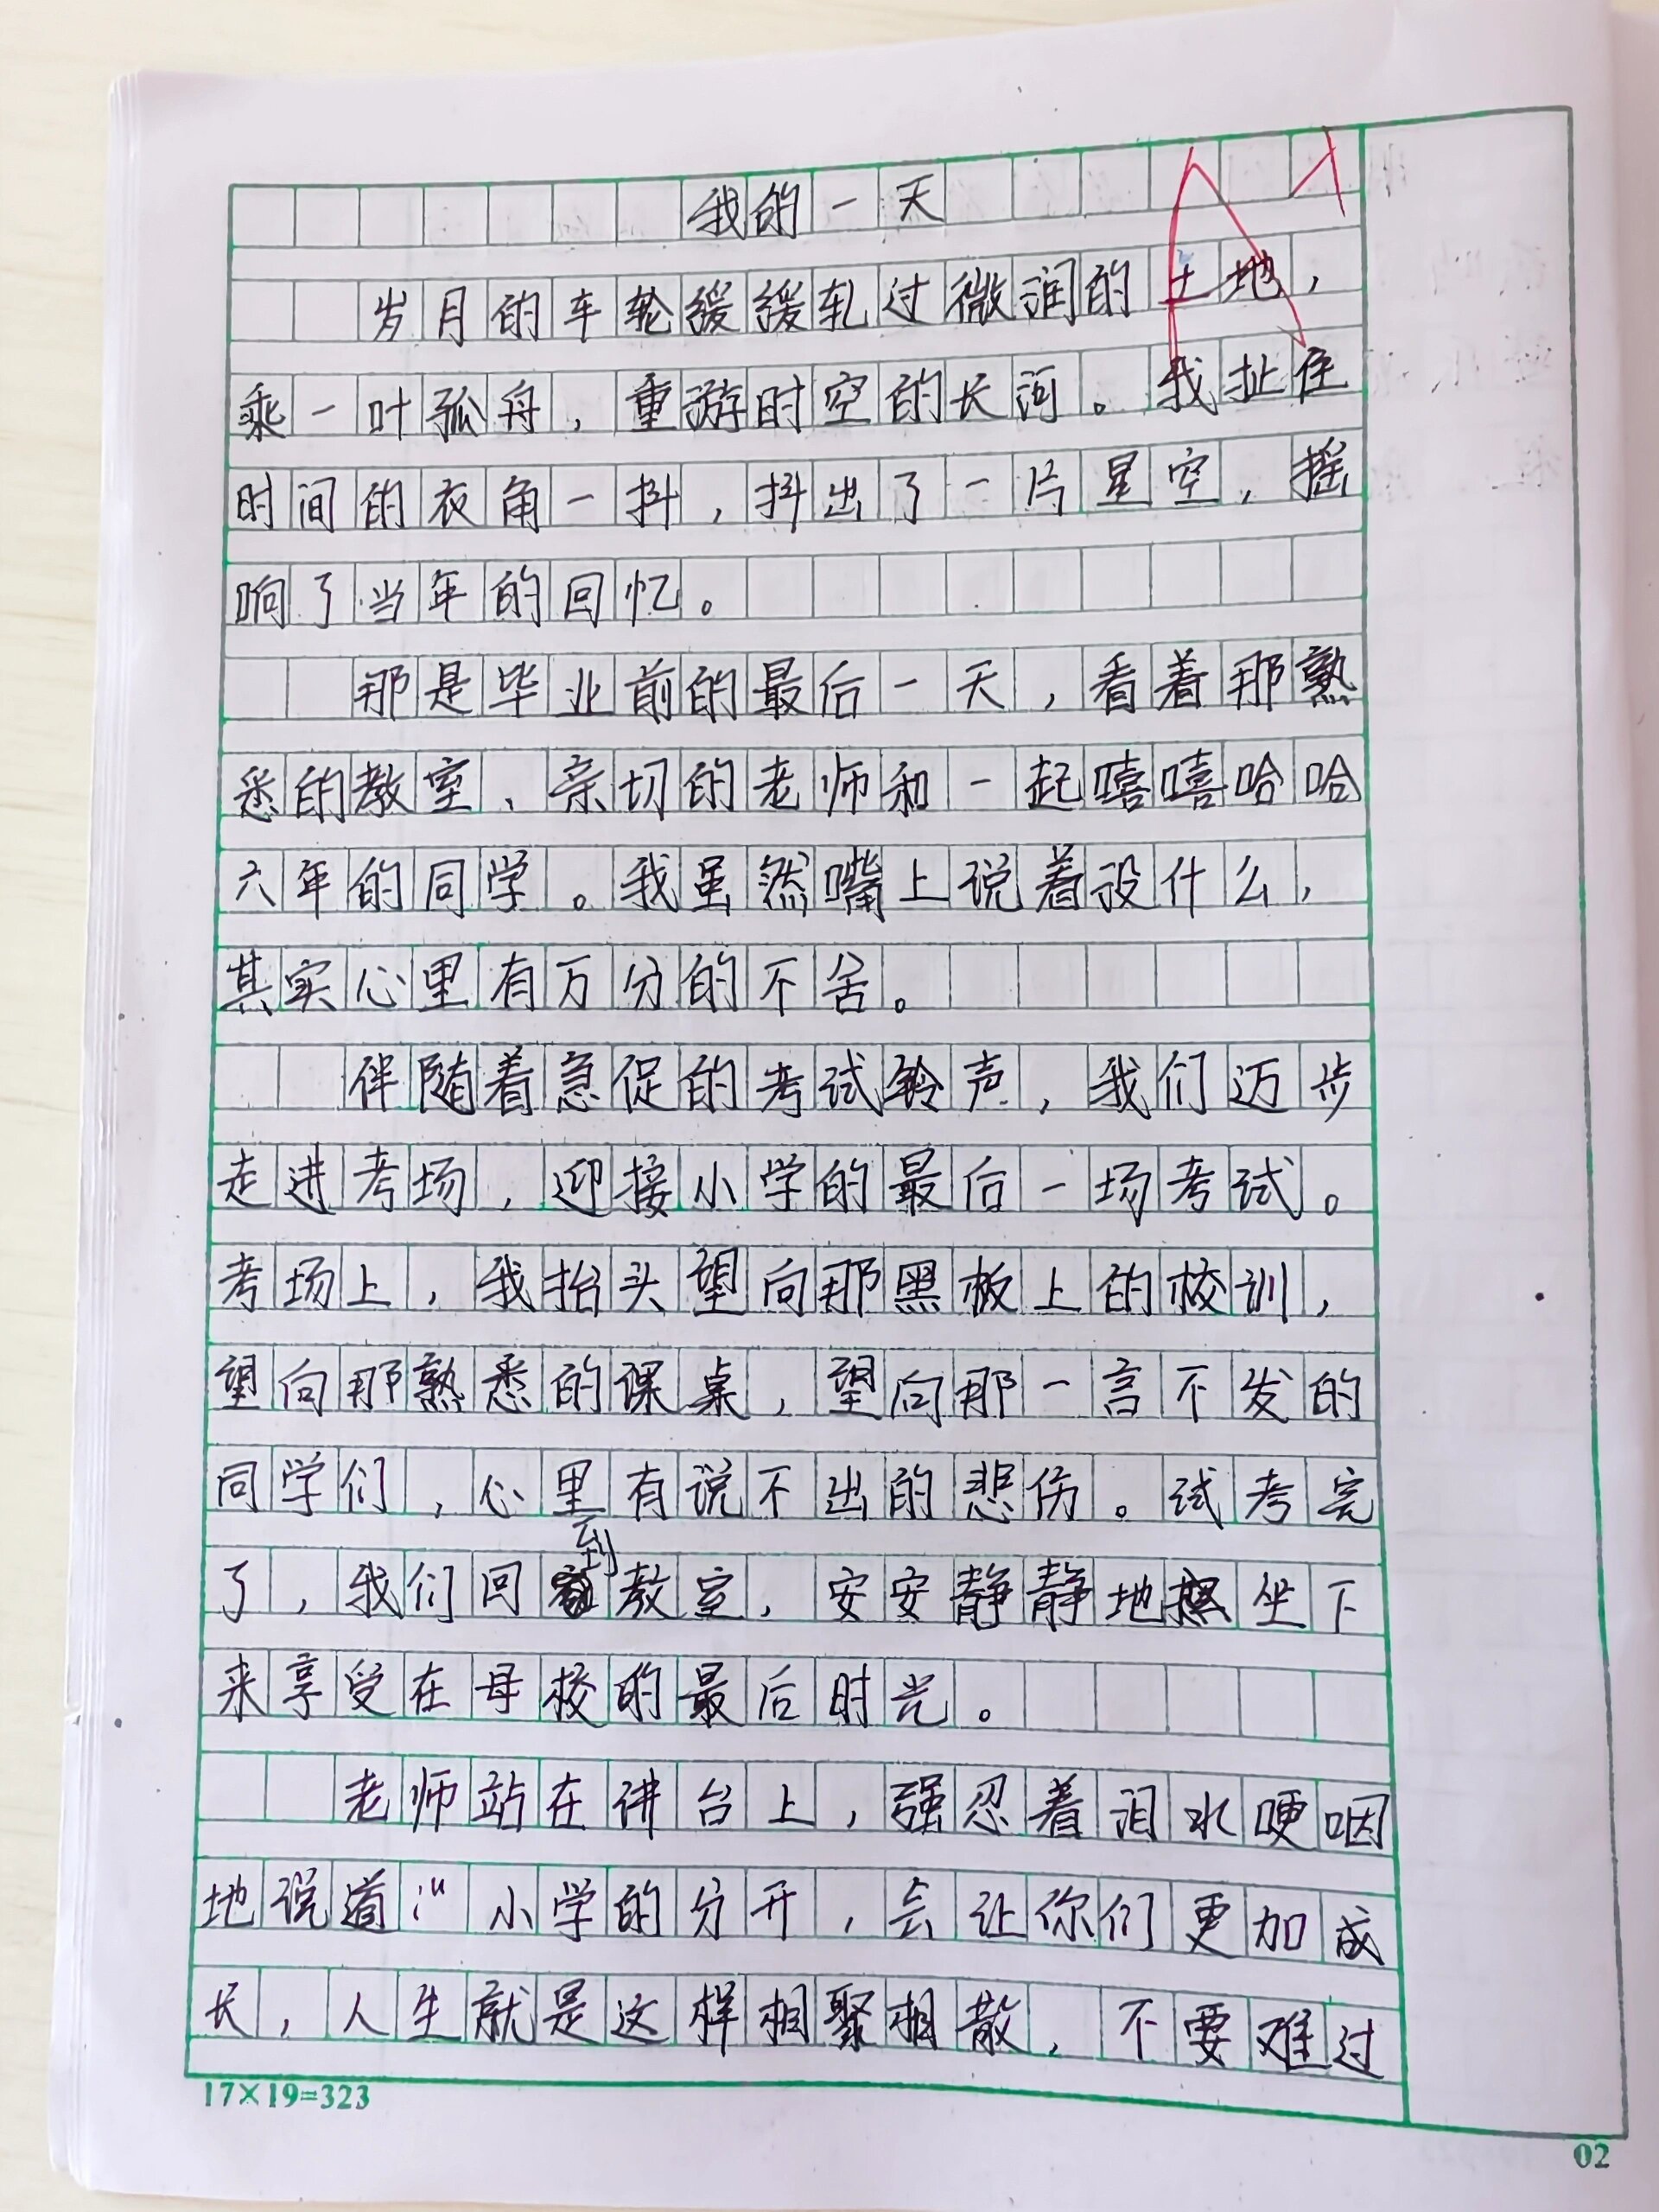 我的一天
岁月的车轮缓缓轧过微润的土地，
乘一叶孤舟，重游时空的长河。我扯住
时间的衣角一抖，抖出了一片星空，摇
响了当年的回忆。
那是毕业前的最后一天，看着那熟
悉的教室、亲切的老师和一起嘻嘻哈哈
六年的同学。我虽然嘴上说着没什么，
其实心里有万分的不舍。
伴随着急促的考试铃声，我们迈步
走进考场，迎接小学的最后一场考试。
考场上，我抬头望向那黑板上的校训，
望向那熟悉的课桌，望向那一言不发的
同学们，心里有说不出的悲伤。试考完
了，我们回到教室，安安静静地坐下
来享受在母校的最后时光。
老师站在讲台上，强忍着泪水哽咽
地说道：“小学的分开，会让你们更加成
长，人生就是这样相聚相散，不要难过
17×19=323
02